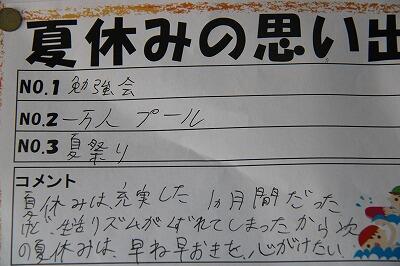 夏休みの思い出
NO.1 勉強会
NO.2 一万人プール
NO.3 夏祭り
コメント
夏休みは、充実した 1ヵ月間だった
けど、生活リズムがくずれてしまったから次
の夏休みは、早ね早おきを、心がけたい